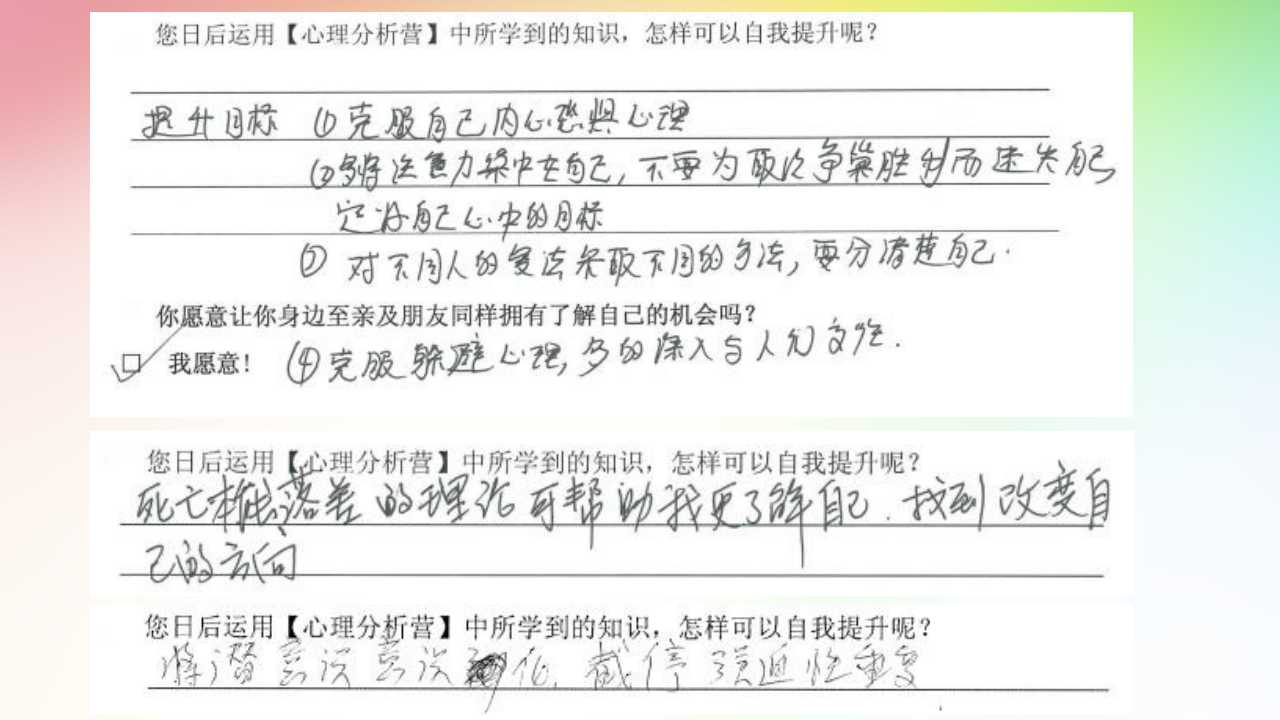 您日后运用【心理分析营】中所学到的知识，怎样可以自我提升呢？
提升目标 ①克服自己内心恐惧心理
②将注意力集中在自己，不要为取以争赢胜利而迷失自己
定好自己心中的目标
③ 对不同人的 采取不同的方法，要分清楚自己.
你愿意让你身边至亲及朋友同样拥有了解自己的机会吗？
☑ 我愿意! ④克服躲避心理，多的深入与人们交往.
您日后运用【心理分析营】中所学到的知识，怎样可以自我提升呢？
死亡本能、落差的理论可帮助我更了解自己.找到改变自
己的方向
您日后运用【心理分析营】中所学到的知识，怎样可以自我提升呢？
将潜意识意识化.截停强迫性重复